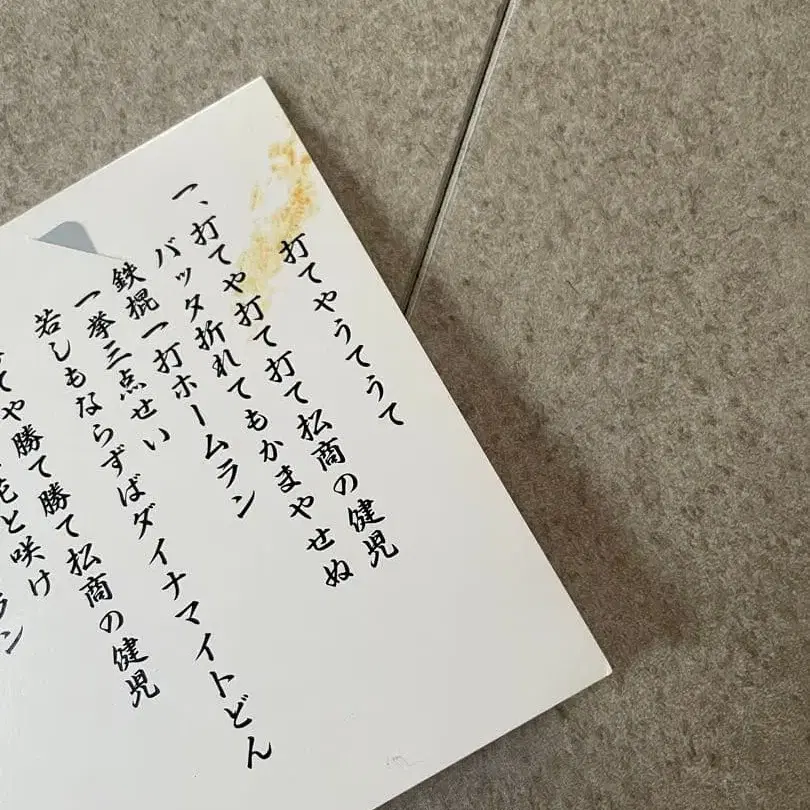 打てやうてうて
一、打てや打て打て松商の健児
バッタ折れてもかまやせぬ
鉄棍一打ホームラン
一挙三点せい
若しもならずばダイナマイトどん
てや勝て勝て松商の健児
と咲け
ラン